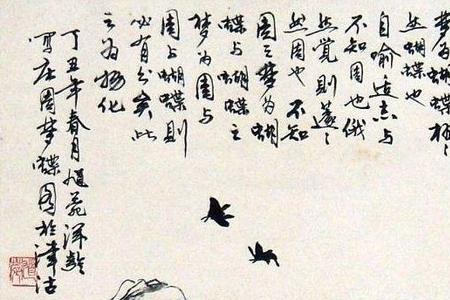 夢為蝴蝶栩〻
然蝴蝶也
自喻適志与
不知周也俄
然覺則蘧〻
然周也不知
周之夢為蝴
蝶与蝴蝶之
夢為周与
周与蝴蝶則
必有分矣此
之為物化
丁丑年春月
寫庄周夢蝶圖於津沽